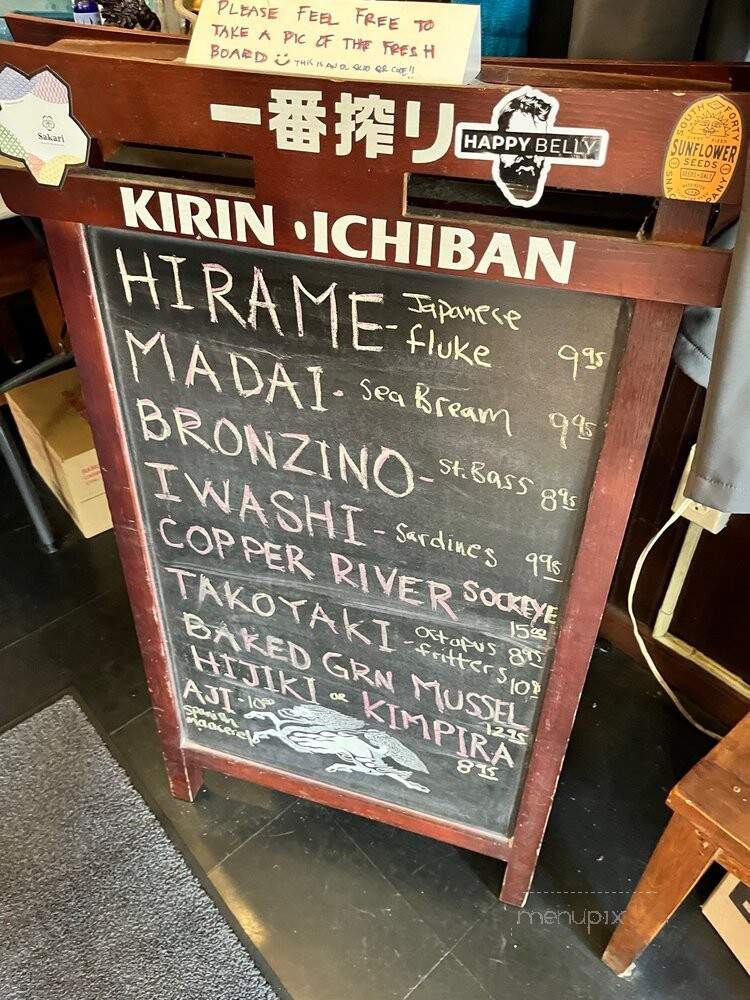 PLEASE FEEL FREE TO
TAKE A PIC OF THE FRESH
BOARD
THIS IS AN OL SKOO QR CODE!!
一番搾り
Sakari
HAPPY BELLY
SOUTH FORTY
SUNFLOWER
SEEDS
SEEDS & SALT
KIRIN • ICHIBAN
HIRAME - Japanese fluke 9 95
MADAI - Sea Bream 9 95
BRONZINO - St. Bass 8 95
IWASHI - Sardines 9 95
COPPER RIVER SOCKEYE 15 00
TAKOYAKI - Octopus fritters 8 95
BAKED GRN MUSSEL 12 95
HIJIKI OR KIMPIRA 8 95
AJI - 10 00
Spanish
Maacerel
menupix